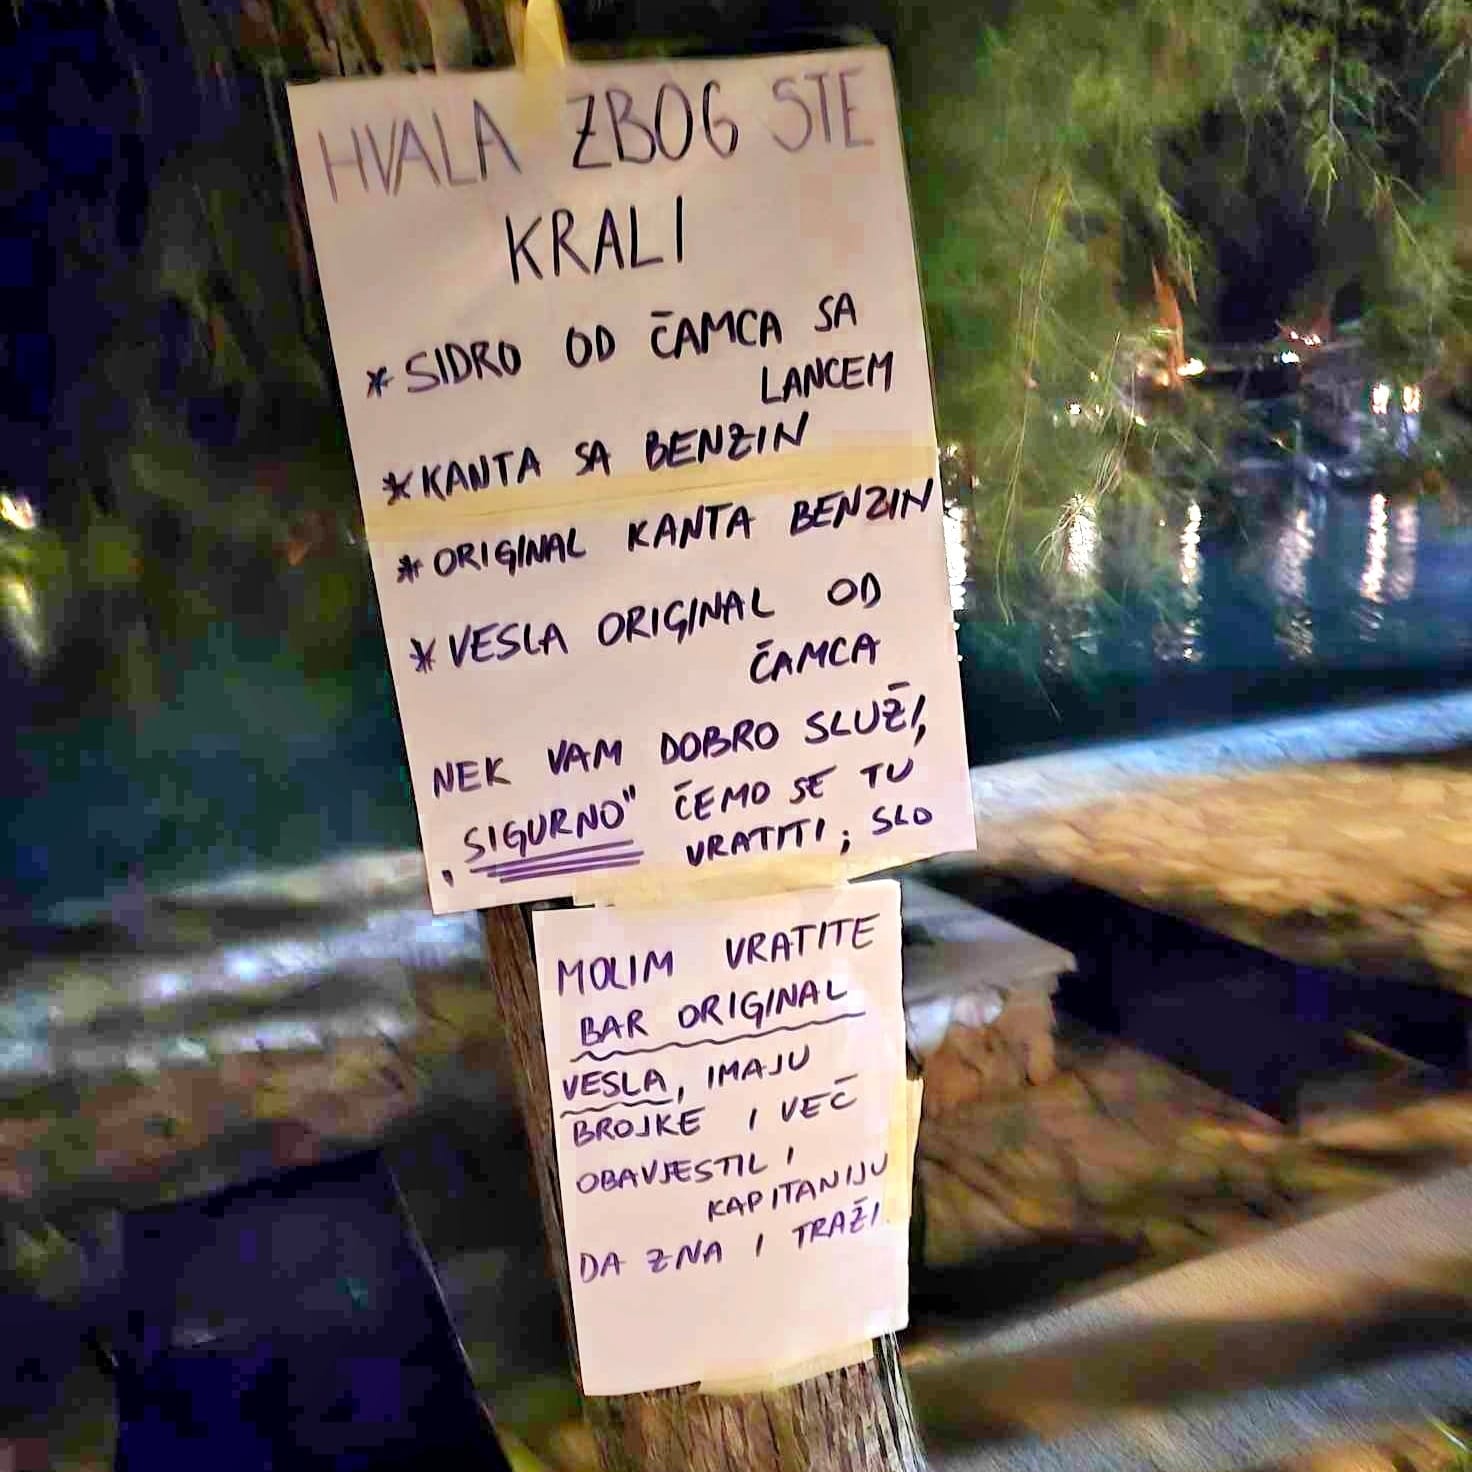 HVALA ZBOG STE
KRALI
* SIDRO OD ČAMCA SA
LANCEM
* KANTA SA BENZIN
* ORIGINAL KANTA BENZIN
* VESLA ORIGINAL OD
ČAMCA
NEK VAM DOBRO SLUŽI,
„SIGURNO" ČEMO SE TU
VRATITI; SLO
MOLIM VRATITE
BAR ORIGINAL
VESLA, IMAJU
BROJKE I VEČ
OBAVJESTIL I
KAPITANIJU
DA ZNA I TRAŽI